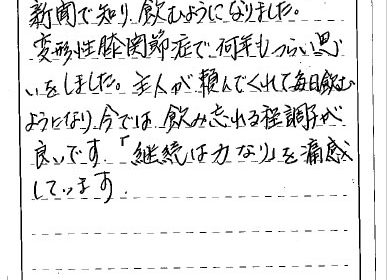 新聞で知り、飲むようになりました。
変形性膝関節症で何年もつらい思
いをしました。主人が頼んでくれて毎日飲む
ようになり、今では飲み忘れる程調子が
良いです。「継続は力なり」を痛感
しています。